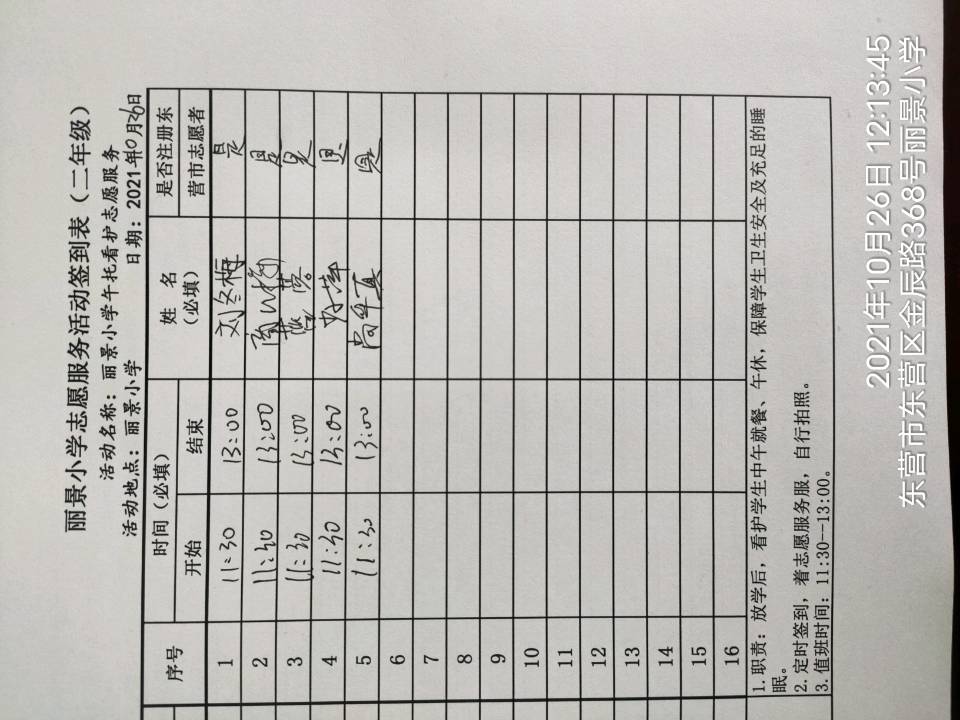 丽景小学志愿服务活动签到表（二年级）
活动名称：丽景小学午托看护志愿服务
活动地点：丽景小学 日期：2021年10月26日
序号 时间（必填） 姓名（必填） 是否注册东营市志愿者
开始 结束
1 11:30 13:00 刘冬梅 是
2 11:30 13:00 是
3 11:30 13:00 是
4 11:30 13:00 是
5 11:30 13:00 是
6
7
8
9
10
11
12
13
14
15
16
1.职责：放学后，看护学生中午就餐、午休，保障学生卫生安全及充足的睡
眠。
2.定时签到，着志愿服务服，自行拍照。
3.值班时间：11:30--13:00。
2021年10月26日 12:13:45
东营市东营区金辰路368号丽景小学